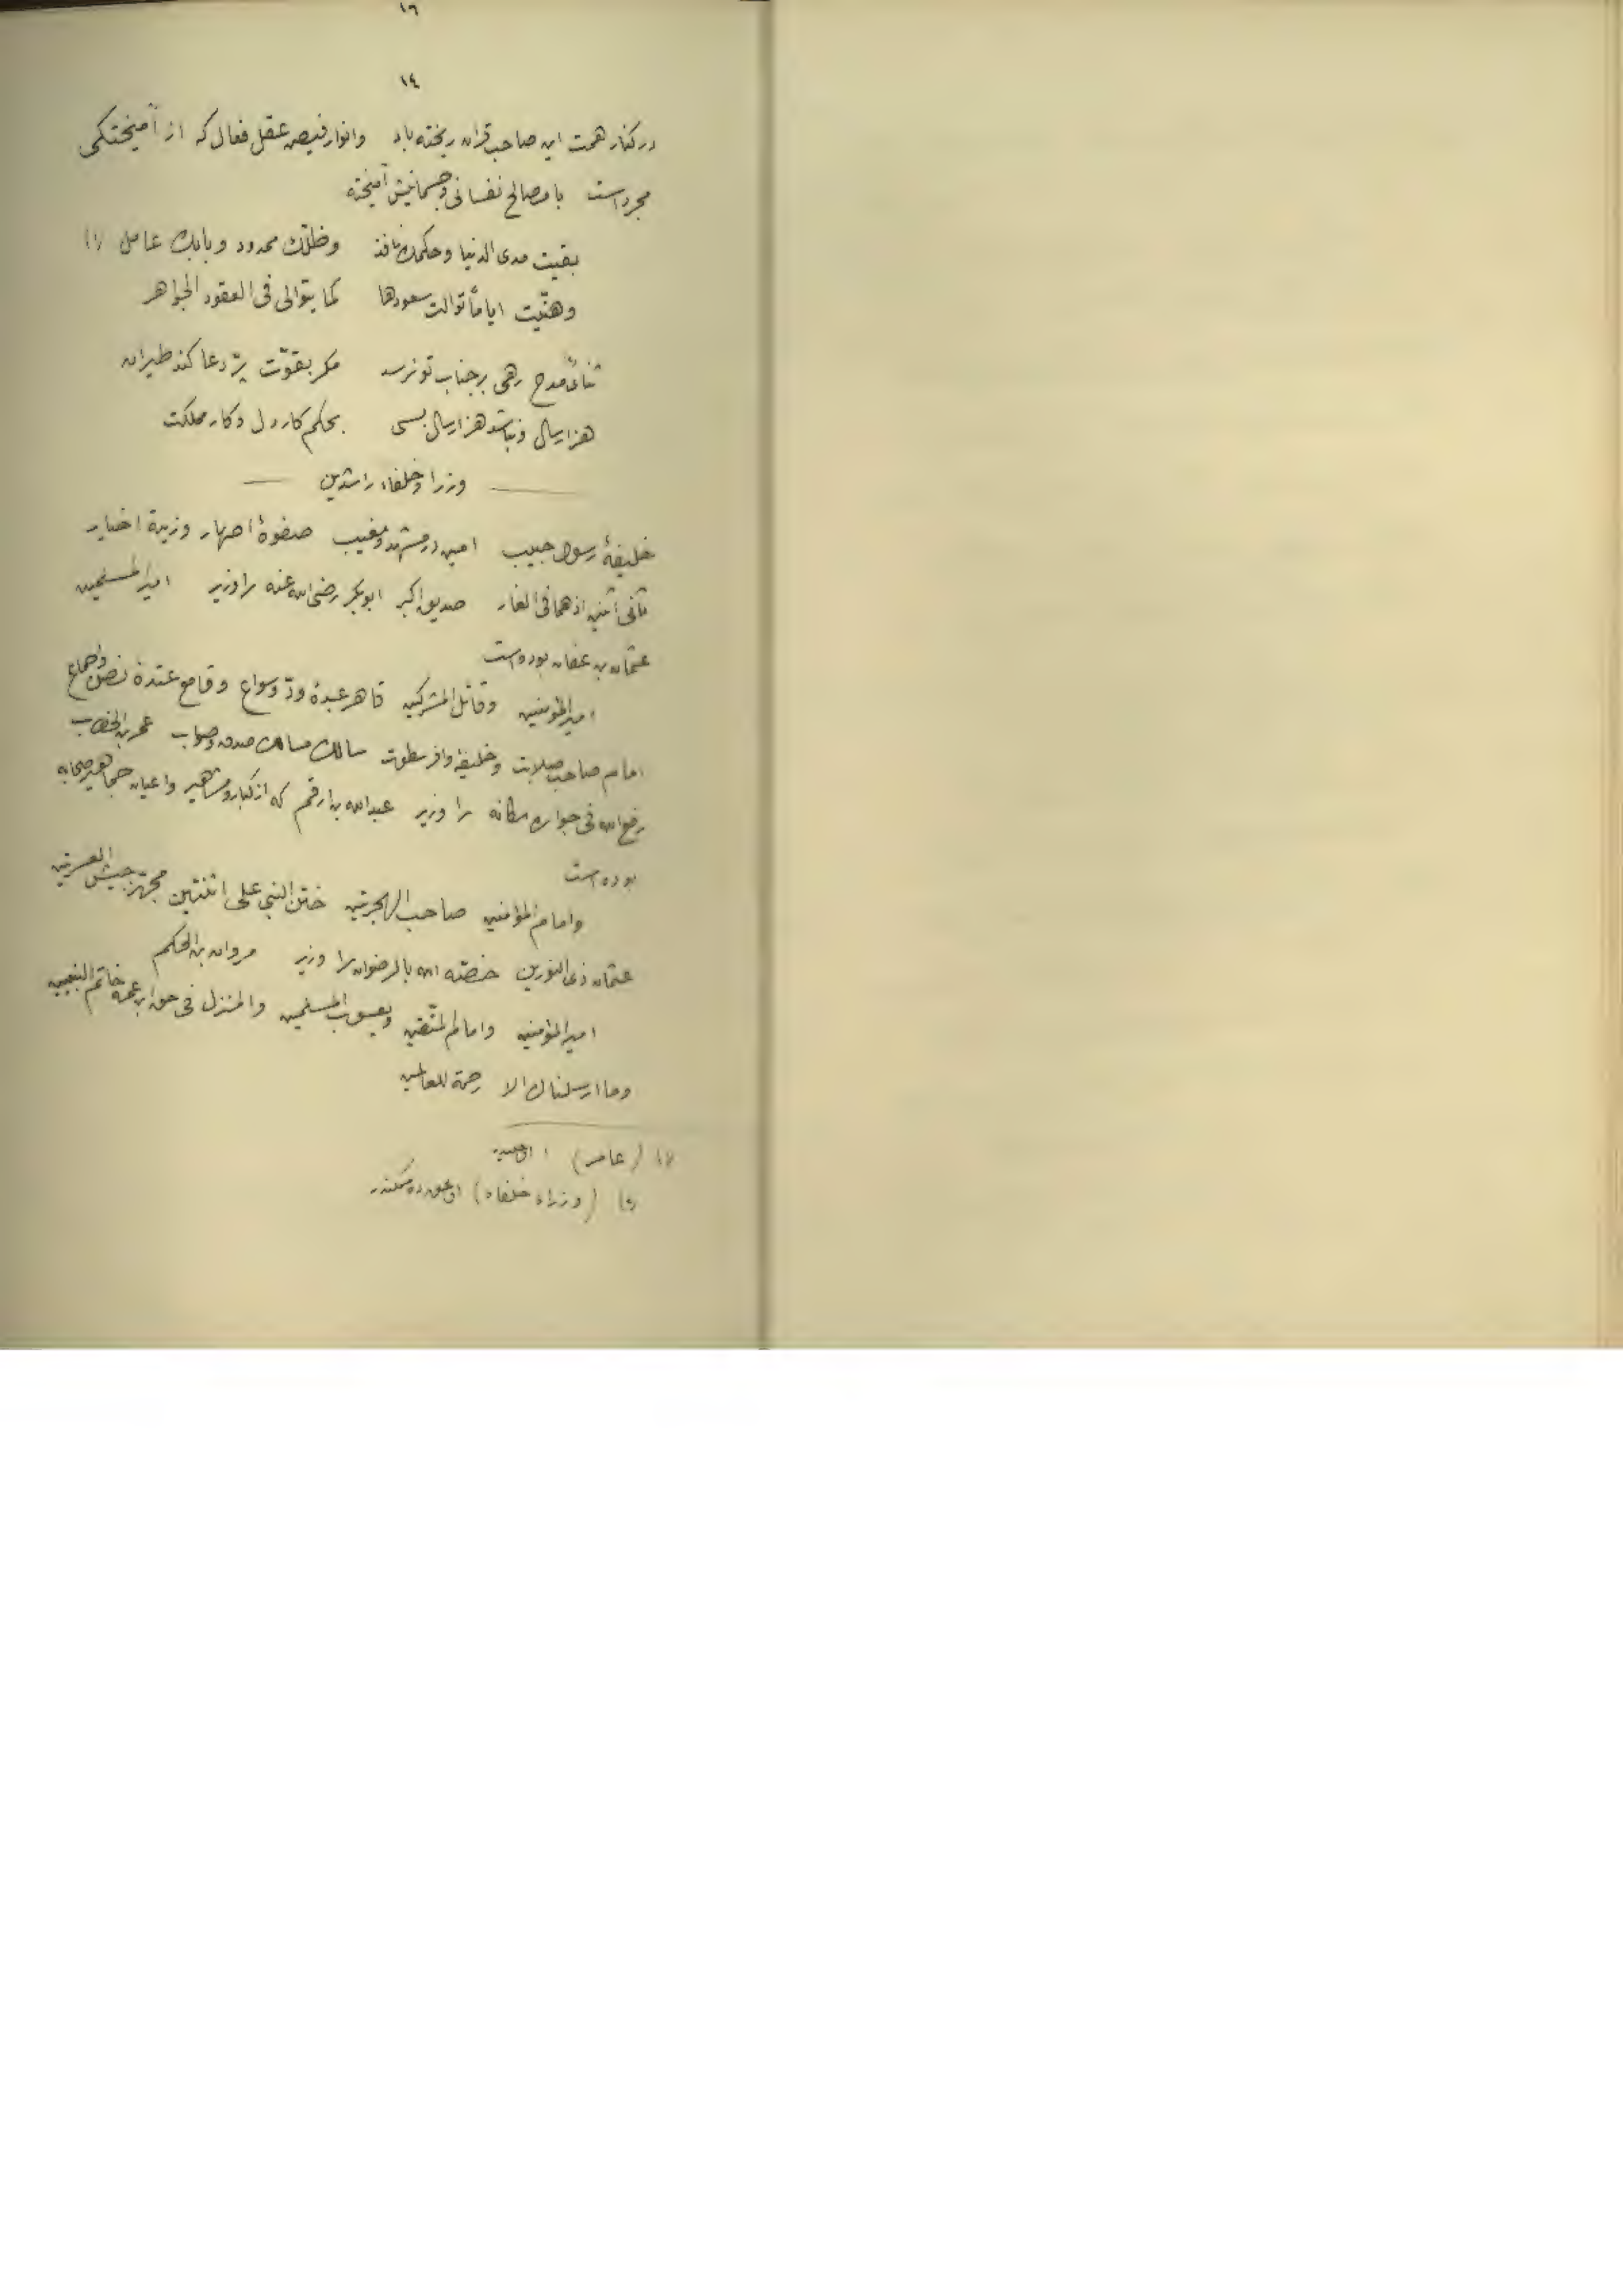 ١٦
١٤
در کنار همت این صاحب قران ریخته باد وانوار فیض عقل فعال که از آمیختکی
مجرد است با مصالح نفسانی و جسمانیش آمیخته
بقیت مدی الدنیا وحکمک نافذ وظلّک ممدود وبابک عامل (١)
وهنّیت ایاماً توالت سعودها کما یتوالی فی العقود الجواهر
ثنای مدح رهی بر جناب تو نرسد مکر بقوّت پرّ دعا کند طیران
هزار سال و نباشد هزار سال بسی بحکم کار دول و کار مملکت
وزرا و خلفاء راشدین
خلیفهٔ رسول حبیب امین در مشهد و مغیب صفوهٔ اصهار وزینة اخیار
ثانی اثنین اذ هما فی الغار صدیق اکبر ابوبکر رضی الله عنه را وزیر امیر المسلمین
عثمان بن عفان بوده است
امیر المؤمنین وقاتل المشرکین قاهر عبدهٔ ودّ وسواع وقامع عتدة نصل واجماع
امام صاحب صلابت و خلیفهٔ وافر سطوت سالک مسالک صدق وصواب عمر بن الخطاب
رفع الله فی جواره مکانه را وزیر عبدالله بن ارقم که از کبار و مشاهیر واعیان جماهیر صحابه
بوده است
وامام المؤمنین صاحب الهجرتین ختن النبی علی اثنتین مجهّز جیش العسرتین
عثمان ذی النورین خصّه الله بالرضوان را وزیر مروان بن الحکم
امیر المؤمنین وامام المتّقین ویعسوب المسلمین والمنزل فی حق ابن عمه خاتم النبیین
وما ارسلناک الا رحمة للعالمین
(١) (عامر)
(٢) (وزراء خلفاء)